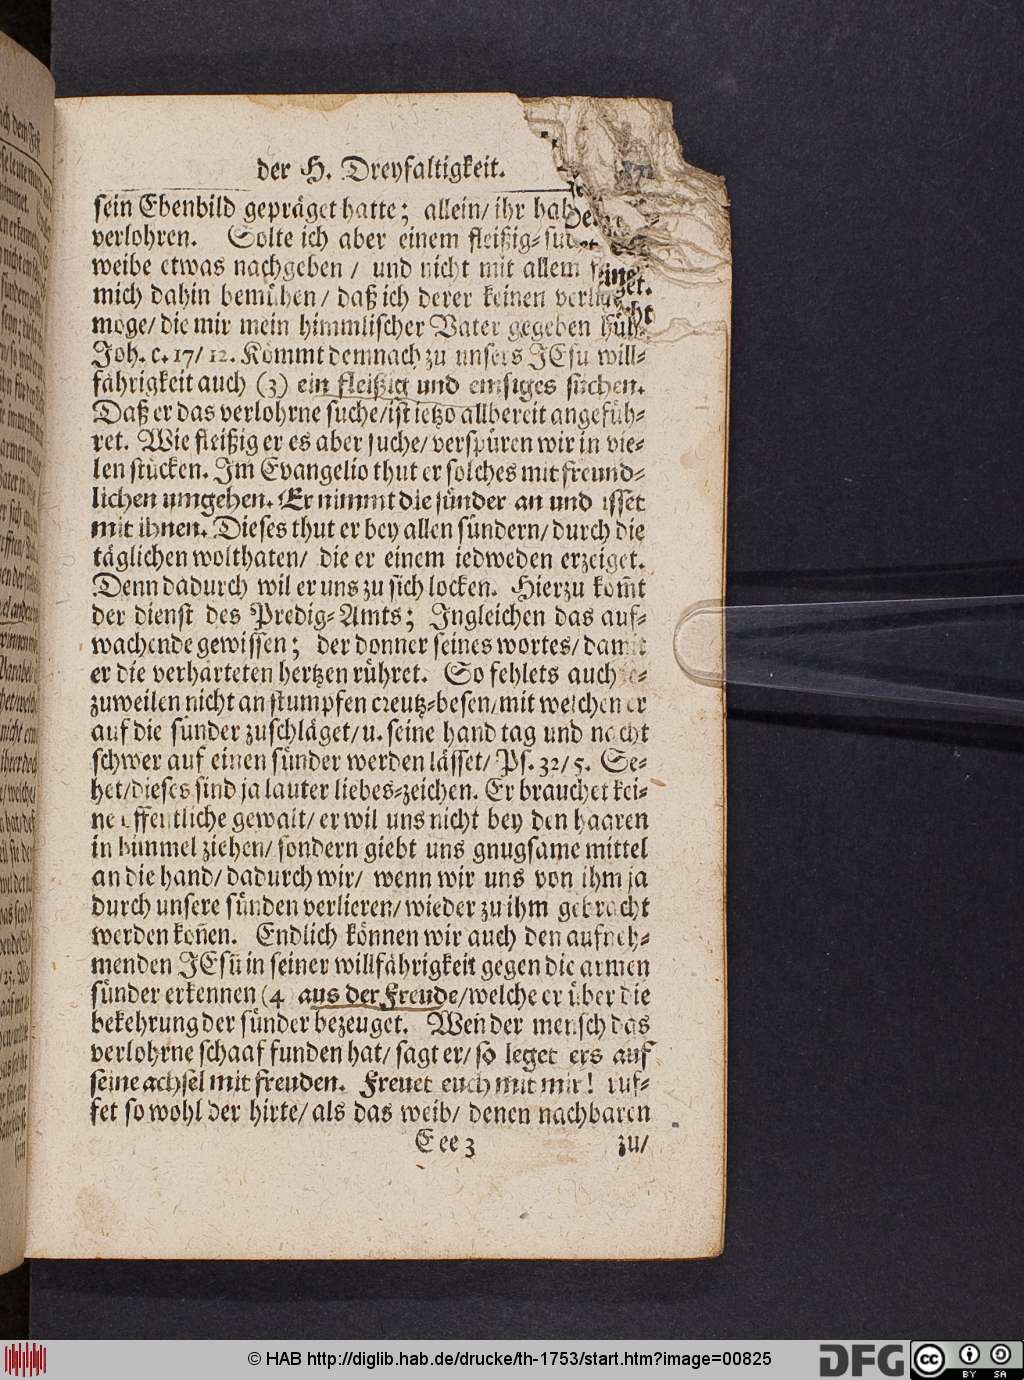 der H. Dreyfaltigkeit.
sein Ebenbild gepräget hatte; allein/ ihr
verlohren. Solte ich aber einem fleißig-
weibe etwas nachgeben / und nicht mit allem
mich dahin bemühen/ daß ich derer keinen
moge/ die mir mein himmlischer Vater gegeben
Joh. c. 17/ 12. Kommt demnach zu unsers JEsu will-
fährigkeit auch (3) ein fleißig und emsiges suchen.
Daß er das verlohrne suche/ ist ietzo allbereit angefüh-
ret. Wie fleißig er es aber suche/ verspüren wir in vie-
len stücken. Im Evangelio thut er solches mit freund-
lichen umgehen. Er nimmt die sünder an und isset
mit ihnen. Dieses thut er bey allen sündern/ durch die
täglichen wolthaten/ die er einem iedweden erzeiget.
Denn dadurch wil er uns zu sich locken. Hierzu kom̃t
der dienst des Predig-Amts; Ingleichen das auf-
wachende gewissen; der donner seines wortes/ damit
er die verharteten hertzen rühret. So fehlets auch
zuweilen nicht an stumpfen creutz-besen/ mit welchen er
auf die sünder zuschläget/ u. seine hand tag und nacht
schwer auf einen sünder werden lässet/ Ps. 32/ 5. Se-
het/ dieses sind ja lauter liebes-zeichen. Er brauchet kei-
ne öffentliche gewalt/ er wil uns nicht bey den haaren
in himmel ziehen/ sondern giebt uns gnugsame mittel
an die hand/ dadurch wir/ wenn wir uns von ihm ja
durch unsere sünden verlieren/ wieder zu ihm gebracht
werden kön̄en. Endlich können wir auch den aufneh-
menden JEsū in seiner willfährigkeit gegen die armen
sünder erkennen (4 aus der Freude/ welche er über die
bekehrung der sünder bezeuget. Wen̄ der mensch das
verlohrne schaaf funden hat/ sagt er/ so leget ers auf
seine achsel mit freuden. Freuet euch mit mir! ruf-
fet so wohl der hirte/ als das weib/ denen nachbaren
Eee 3 zu/
© HAB http://diglib.hab.de/drucke/th-1753/start.htm?image=00825
DFG
cc BY SA